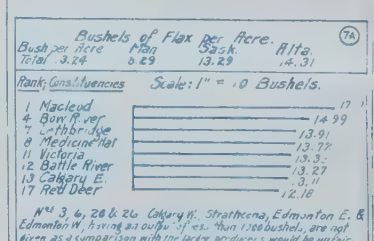 Bushels of Flax per Acre.
7A
Bush per Acre Man Sask. Alta.
Total 3.24 6.29 13.29 14.31
Rank; Constituencies Scale: 1" = 10 Bushels.
1 Macleod 17
4 Bow River 14 99
7 Lethbridge 13.91
8 Medicine Hat 13.77
11 Victoria 13.3
12 Battle River 13.27
13 Calgary E. 3.11
17 Red Deer 12.18
Nos 3, 6, 20 & 26 Calgary W., Strathcona, Edmonton E. &
Edmonton W, having an output of less than 1300 bushels, are not
given as a comparison with the larger producers would be unfair.